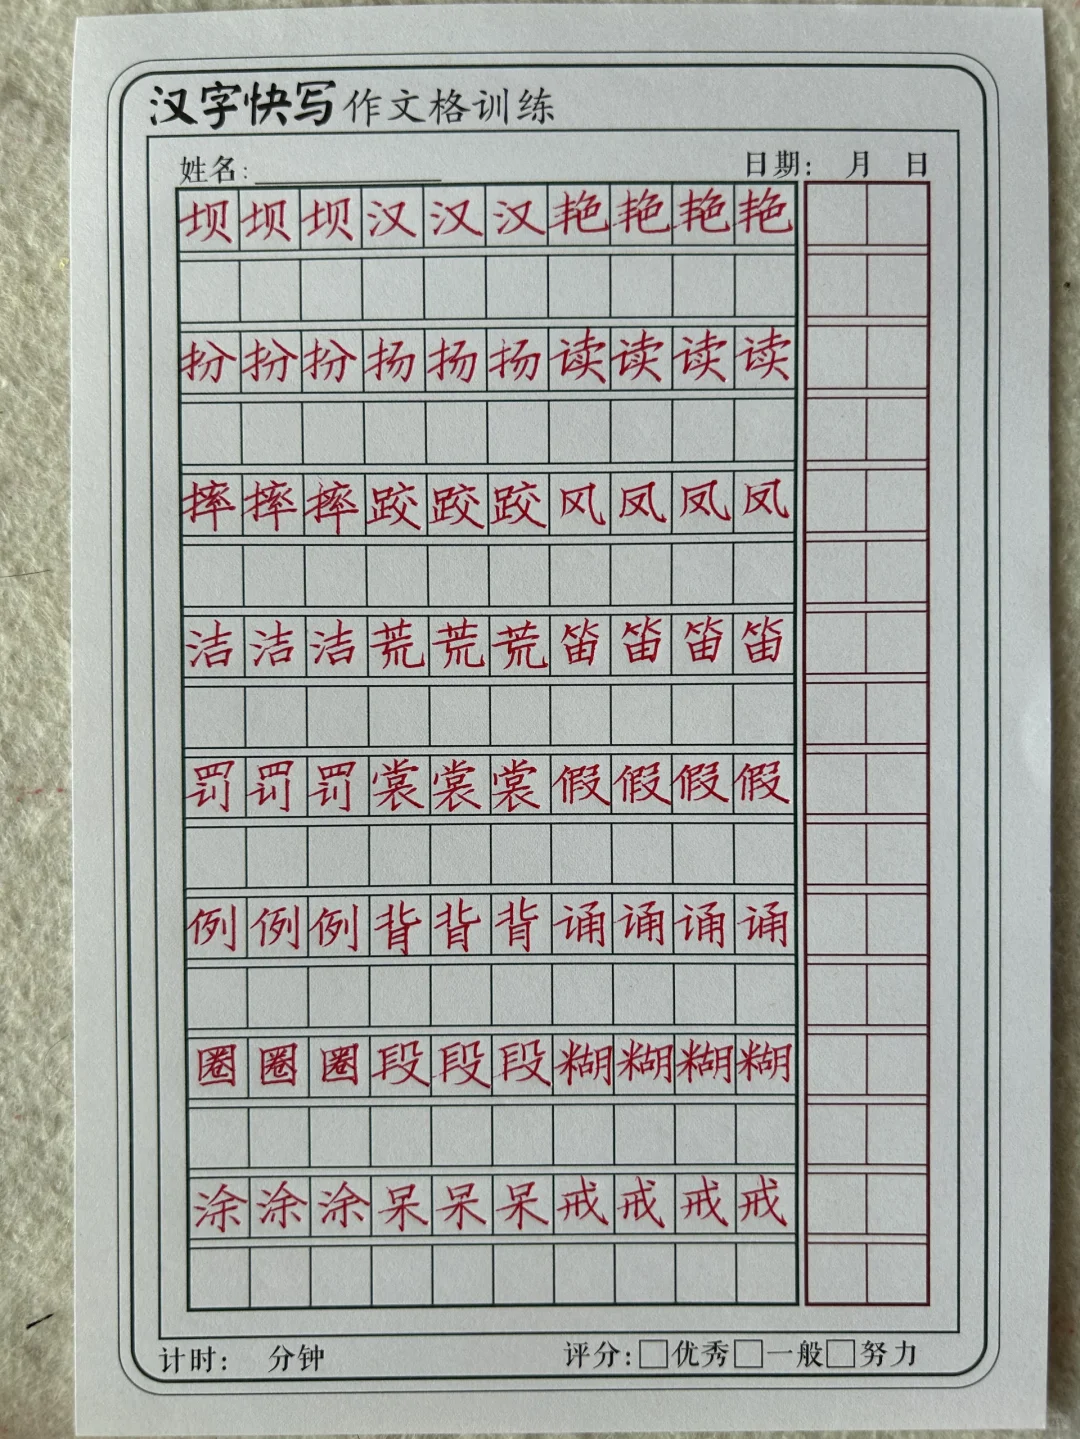 汉字快写作文格训练
姓名: 日期: 月 日
坝坝坝汉汉汉艳艳艳艳
扮扮扮扬扬扬读读读读
摔摔摔跤跤跤风凤凤凤
洁洁洁荒荒荒笛笛笛笛
罚罚罚裳裳裳假假假假
例例例背背背诵诵诵诵
圈圈圈段段段糊糊糊糊
涂涂涂呆呆呆戒戒戒戒
计时: 分钟 评分:□优秀□一般□努力